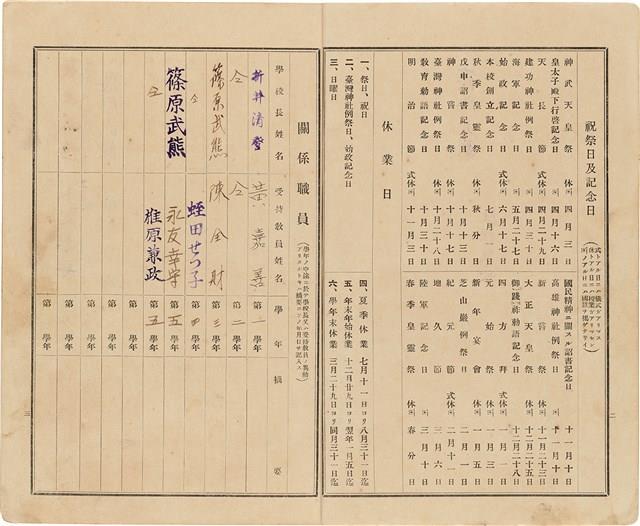 祝祭日及記念日
神武天皇祭 休㋩ 四月三日
皇太子殿下行啓記念日 四月十六日
天長節 式休㋩ 四月二十九日
建功神社例祭日 ㋩ 四月三十日
海軍記念日 ㋩ 五月二十七日
始政記念日 式休㋩ 六月十七日
本校創立記念日 七月一日
秋季皇靈祭 休㋩ 秋分日
戊申詔書記念日 十月十三日
神嘗祭 休㋩ 十月十七日
臺灣神社例祭日 休㋩ 十月二十八日
教育勅語記念日 十月三十日
明治節 式休㋩ 十一月三日
國民精神ニ關スル詔書記念日 十一月十日
高雄神社例祭日
新嘗祭 休㋩ 十一月二十三日
大正天皇祭 休㋩ 十二月二十五日
四方拜 式休㋩ 一月一日
元始祭 休㋩ 一月三日
新年宴會 休㋩ 一月五日
芝山巖例祭日 二月一日
紀元節 式休㋩ 二月十一日
地久節 三月六日
陸軍記念日 ㋩ 三月十日
春季皇靈祭 休㋩ 春分日
休業日
一、祭日、祝日
二、臺灣神社例祭日、始政記念日
三、日曜日
四、夏季休業 七月十一日ヨリ八月三十一日迄
五、年末年始休業 十二月廿九日ヨリ翌年一月五日迄
六、學年末休業 三月二十九日ヨリ同月三十一日迄
二
關係職員
學校長姓名 受持教員姓名 學年 摘要
新井清 黃嘉 第一學年
仝 仝 第二學年
篠原武熊 陳全財 第三學年
仝 蛭田せつ子 第四學年
篠原武熊 永友幸守 第五學年
仝 椎原兼政 第五學年
第學年
第學年
第學年
三